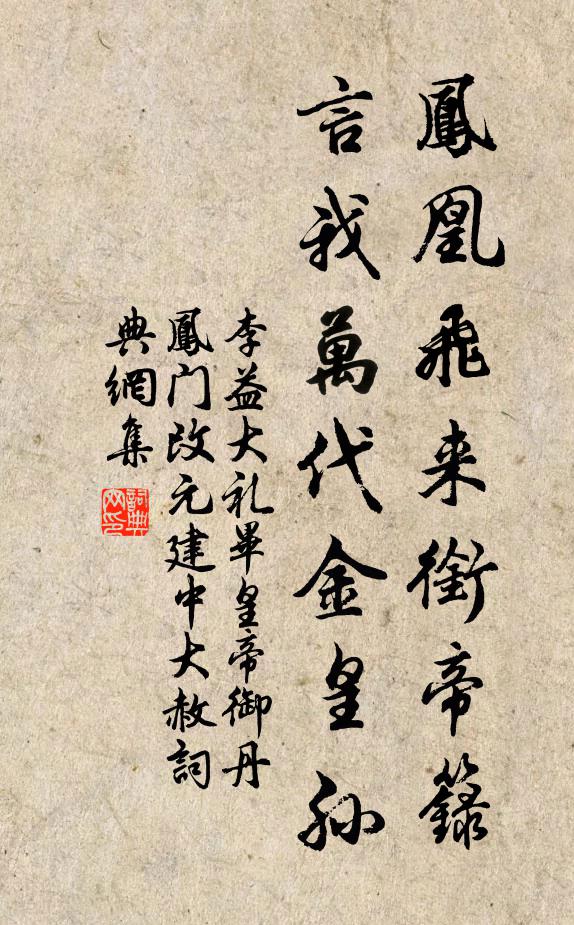 鳳凰飛来銜帝籙
言我萬代金皇孙
李益大礼畢皇帝御丹
鳳门改元建中大赦詞
典網集
詞典网印